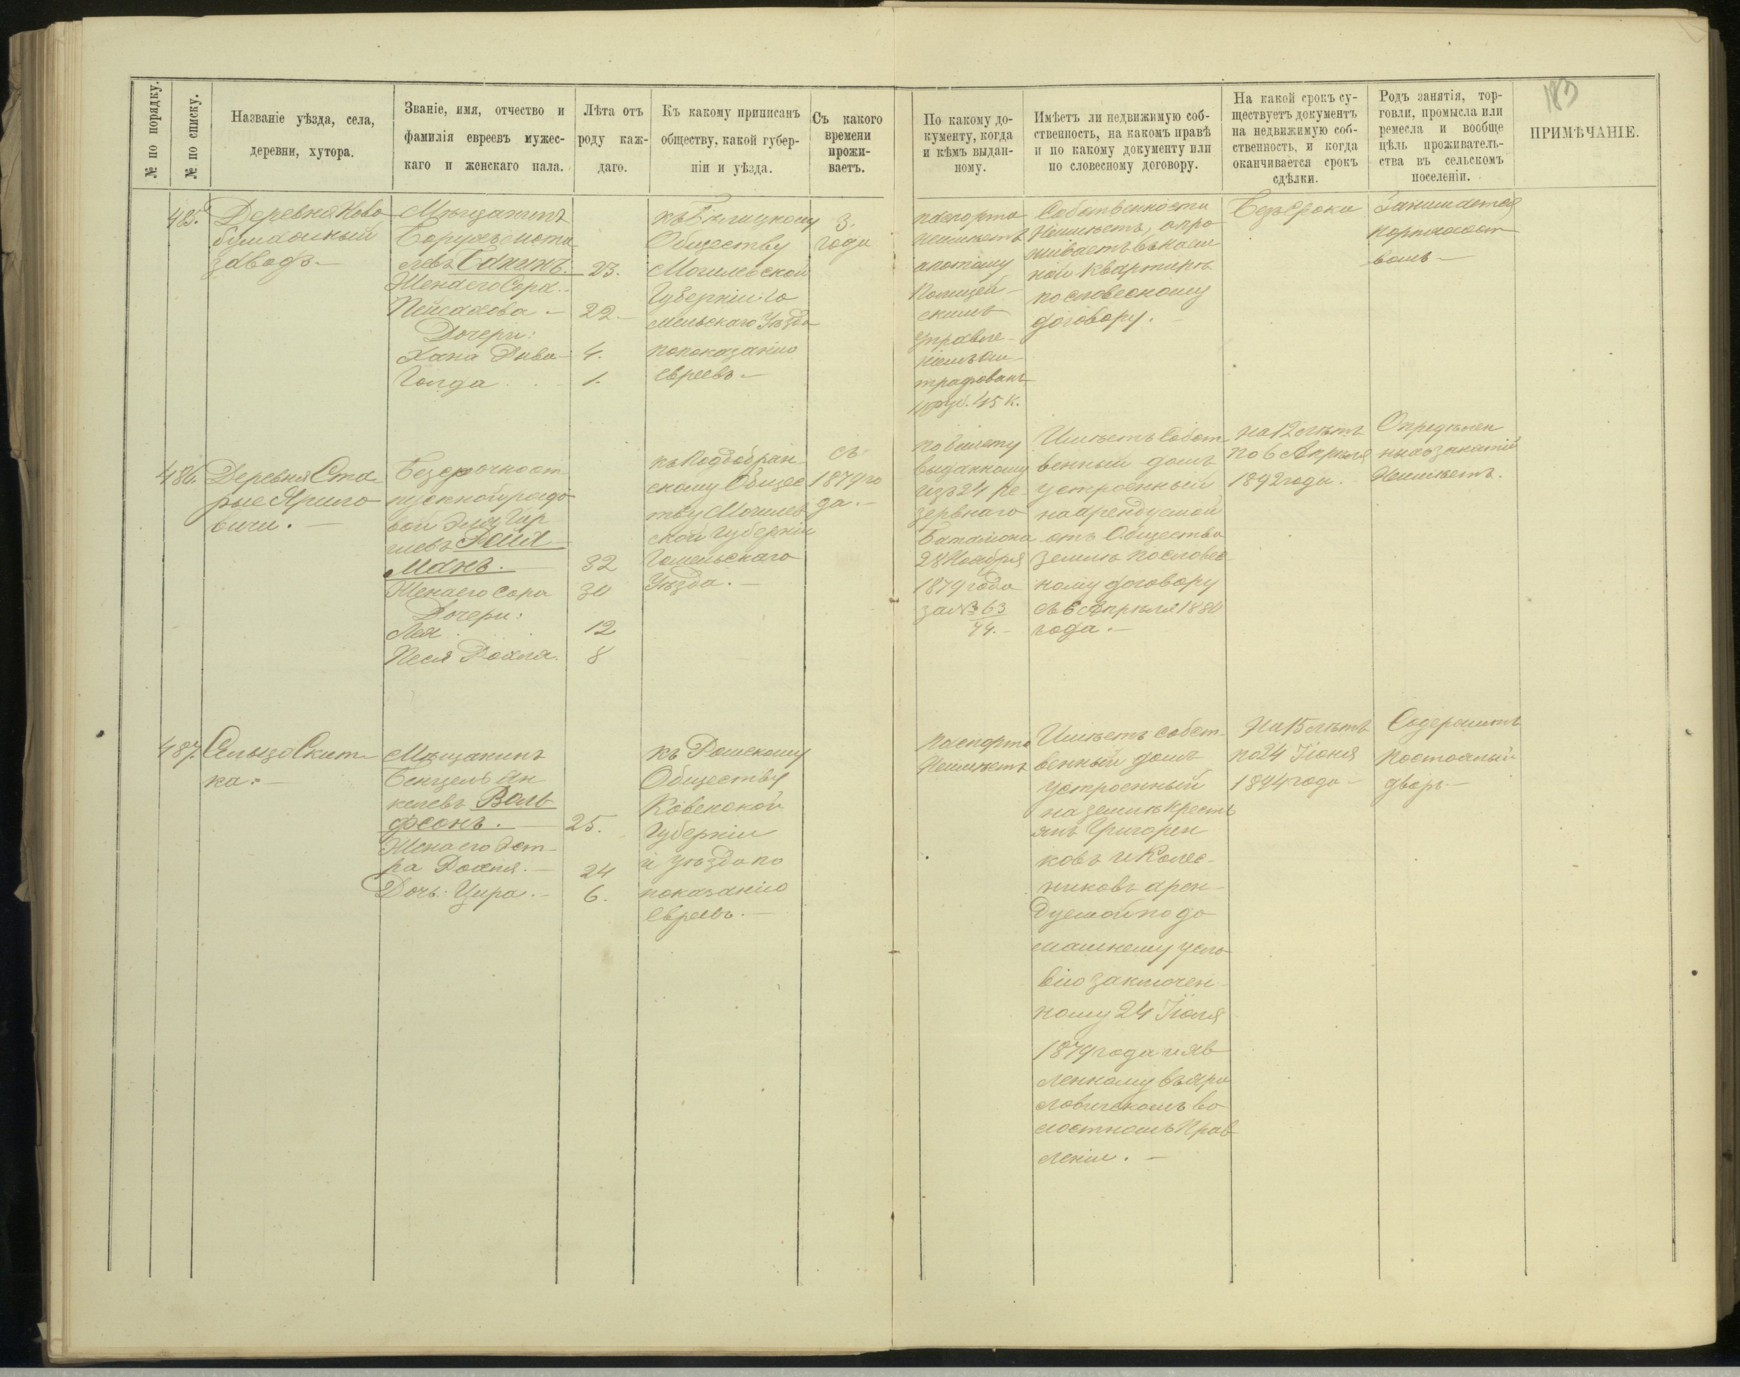 183
№ по порядку.
№ по списку.
Названіе уѣзда, села,
деревни, хутора.
Званіе, имя, отчество и
фамилія евреевъ мужес-
каго и женскаго пала.
Лѣта отъ
роду каж-
даго.
Къ какому приписанъ
обществу, какой губер-
ніи и уѣзда.
Съ какого
времени
прожи-
ваетъ.
По какому до-
кументу, когда
и кѣмъ выдан-
ному.
Имѣетъ ли недвижимую соб-
ственность, на какомъ правѣ
и по какому документу или
по словесному договору.
На какой срокъ су-
ществуетъ документъ
на недвижимую соб-
ственность, и когда
оканчивается срокъ
сдѣлки.
Родъ занятія, тор-
говли, промысла или
ремесла и вообще
цѣль проживатель-
ства въ сельскомъ
поселеніи.
ПРИМѢЧАНІЕ.
485.
Деревня Ново
бумажный
заводъ.
Мѣщанинъ
Борухъ
левъ
23.
Жена его Сора
Пейсахова. —
22. —
Дочери:
Хана Дива —
4.
Голда
1.
къ Бѣлицкому
Обществу
Могилевской
Губерніи Го
мельскаго Уѣзда
по показанію
евреевъ. —
3.
года
паспорта
неимѣетъ
а потому
Полицей-
скимъ
Управле-
ніемъ ош-
трафованъ
руб. 45 к.
Собственности
Неимѣетъ, а про
живаетъ въ наем
ной квартирѣ
по словесному
договору.
Безъ Срока
Занимается
—
486.
Деревня Ста
рые Ярило
вичи. —
Безсрочноот
пускной рядо
вой
левъ
манъ. —
32
Жена его Сора
30
Дочери:
Лея
12
Песя Рохля.
8
къ Подобрян
скому Общес
тву Могилев
ской Губерніи
Гомельскаго
Уѣзда. —
съ
1879 го
да. —
по билету
выданному
изъ 24 ре
зервнаго
Баталіона
28 Ноября
1879 года
за № 63
74. —
Имѣетъ Собст
венный домъ
устроенный
на арендуемой
отъ Общества
землѣ по словес
ному договору
съ 6 Апрѣля 1880
года. —
На 12 лѣтъ
по 6 Апрѣля
1892 года.
Опредѣлен
ныхъ занятій
Неимѣетъ.
487.
Сельцо Скит
ка. —
Мѣщанинъ
Бенцель Ян
келевъ Воль
фсонъ. —
25.
Жена его Эст-
ра Рохля. —
24
Дочь: Цира. —
6.
Обществу
Ковенской
Губерніи
и уѣзда по
показанію
Евреевъ. —
Паспорта
Неимѣетъ
Имѣетъ собст-
венный домъ
устроенный
на землѣ крестъ
янъ Григорен
ковъ и Колес-
никовъ арен-
дуемой по до
машнему усло-
вію заключен-
ному 24 Іюля
1879 года и яв
ленному въ Яри
ловичскомъ во
лостномъ Прав
леніи. —
На 15 лѣтъ
по 24 Іюня
1894 года —
Содержитъ
постоялый
дворъ. —